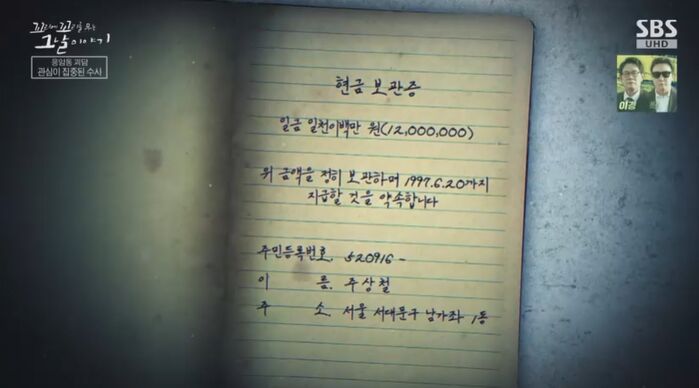 꼬리에 꼬리를 무는
그날 이야기
응암동 괴담
관심이 집중된 수사
SBS
UHD
이경
현금 보관증
일금 일천이백만 원(12,000,000)
위 금액을 정히 보관하며 1997.6.20까지
지급할 것을 약속합니다
주민등록번호. 520916-
이 름. 주상철
주 소. 서울 서대문구 남가좌 1동